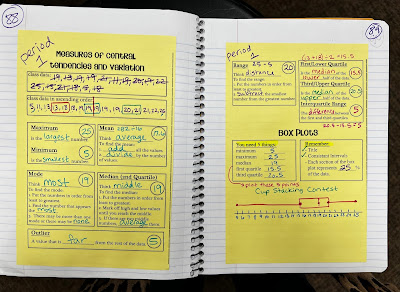 88
period
1
MEASURES OF CENTRAL
TENDENCIES AND VARIATION
class data:
class data in ascending order:
Maximum
is the largest number.
25
Minimum
is the smallest number.
5
Mean
Think average
To find the mean:
add all the values
divide by the number
of values.
Mode
Think most
19
To find the mode:
1. Put the numbers in order from
least to greatest.
2. Find the number that appears
the most.
3. There may be more than one
mode or there may be none.
Median (2nd Quartile)
Think middle
19
To find the median:
1. Put the numbers in order from
least to greatest.
2. Mark off high and low values
until you reach the middle.
average them
Outlier
A value that is far from the rest of the data.
5
89
period
1
Range 25-5
20
Think distance
To find the range:
1. Put the numbers in order from
least to greatest.
2. Subtract the smallest
number from the greatest number.
(13+18)÷2=15.5
First/Lower Quartile
is the median of the
lower half of the data.
15.5
Third/Upper Quartile
is the median of the
upper half of the data.
20.5
Interquartile Range
The difference between
the first and third quartiles.
20.5-15.5=5
BOX PLOTS
You need 5 things:
minimum 5
maximum 25
median 19
first quartile 15.5
third quartile 20.5
Remember:
Title
Consistent Intervals
Each section of the box
plot represents 25 %
of the data.
plot these 5 points
Cup Stacking Contest